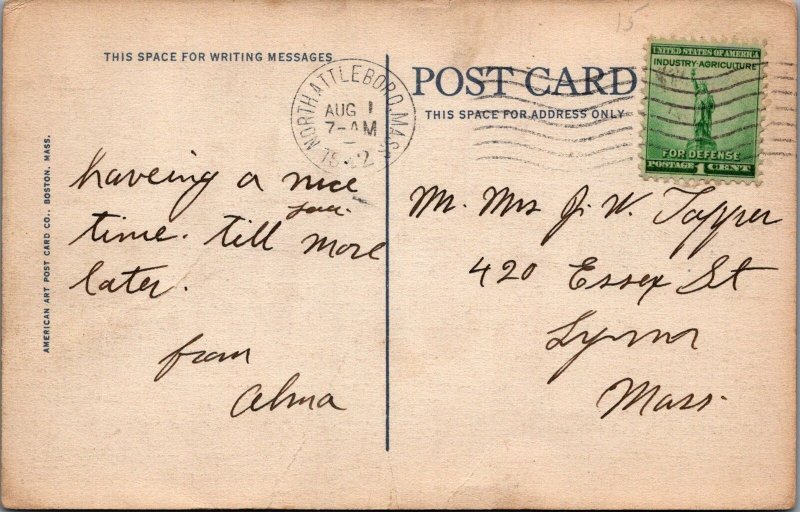 15
THIS SPACE FOR WRITING MESSAGES
NORTH ATTLEBORO, MASS.
AUG 1
7-AM
1942
POST CARD
THIS SPACE FOR ADDRESS ONLY
UNITED STATES OF AMERICA
INDUSTRY-AGRICULTURE
FOR DEFENSE
POSTAGE 1 CENT
AMERICAN ART POST CARD CO., BOSTON, MASS.
haveing a nice
time. till you more
later.
from
Alma
Mr. Mrs J. W. Tapper
420 Essex St
Lynn
Mass.